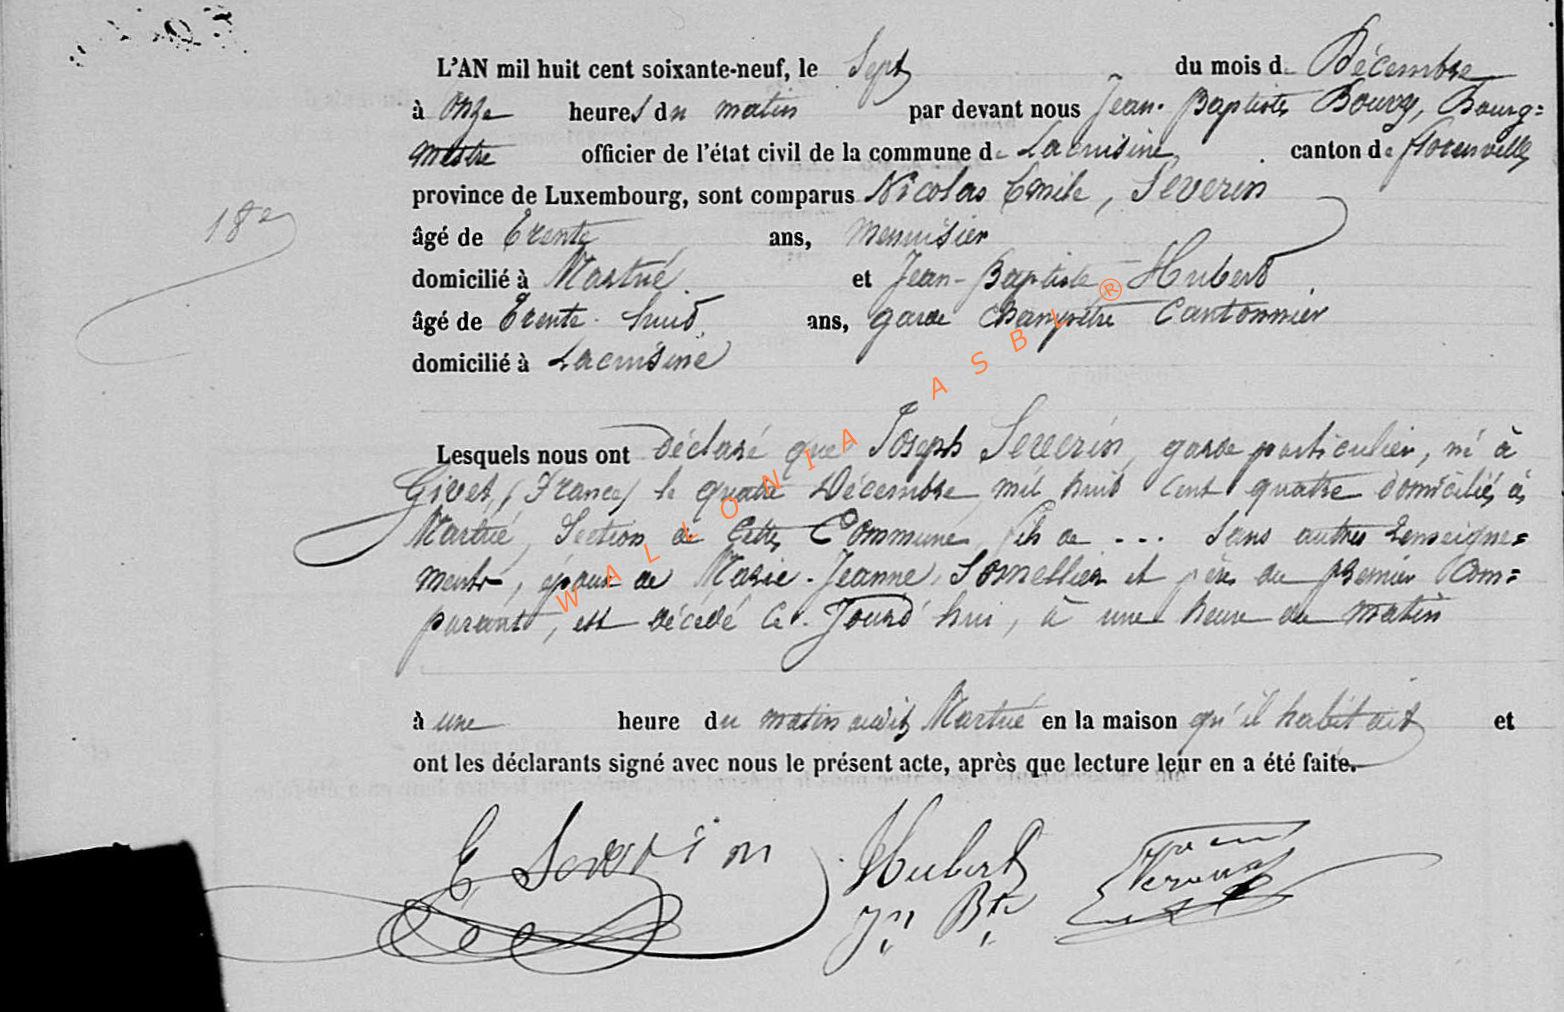 L'AN mil huit cent soixante-neuf, le Sept du mois de Décembre
à Onze heures du matin par devant nous Jean-Baptiste Bouvy, Bourg=
mestre officier de l'état civil de la commune de Lacuisine, canton de florenville
province de Luxembourg, sont comparus Nicolas Emile, Severin
18e
âgé de Trente ans, menuisier
domicilié à Martué et Jean-Baptiste Hubert
âgé de Trente-huit ans, garde champêtre Cantonnier
domicilié à Lacuisine
Lesquels nous ont déclaré que Joseph Severin, garde particulier, né à
Givet, (France) le quatre Décembre mil huit Cent quatre domiciliés à
Martué, Section de Cette Commune, fils de - - - Sans autres renseigne=
ments, époux de Marie-Jeanne, Somellier et père du premier Com=
parant, est décédé Ce-Jourd'hui, à une heure du matin
à une heure du matin audit Martué en la maison qu'il habitait et
ont les déclarants signé avec nous le présent acte, après que lecture leur en a été faite.
E Severin Hubert
Jn Bte
WALLONIA ASBL ®